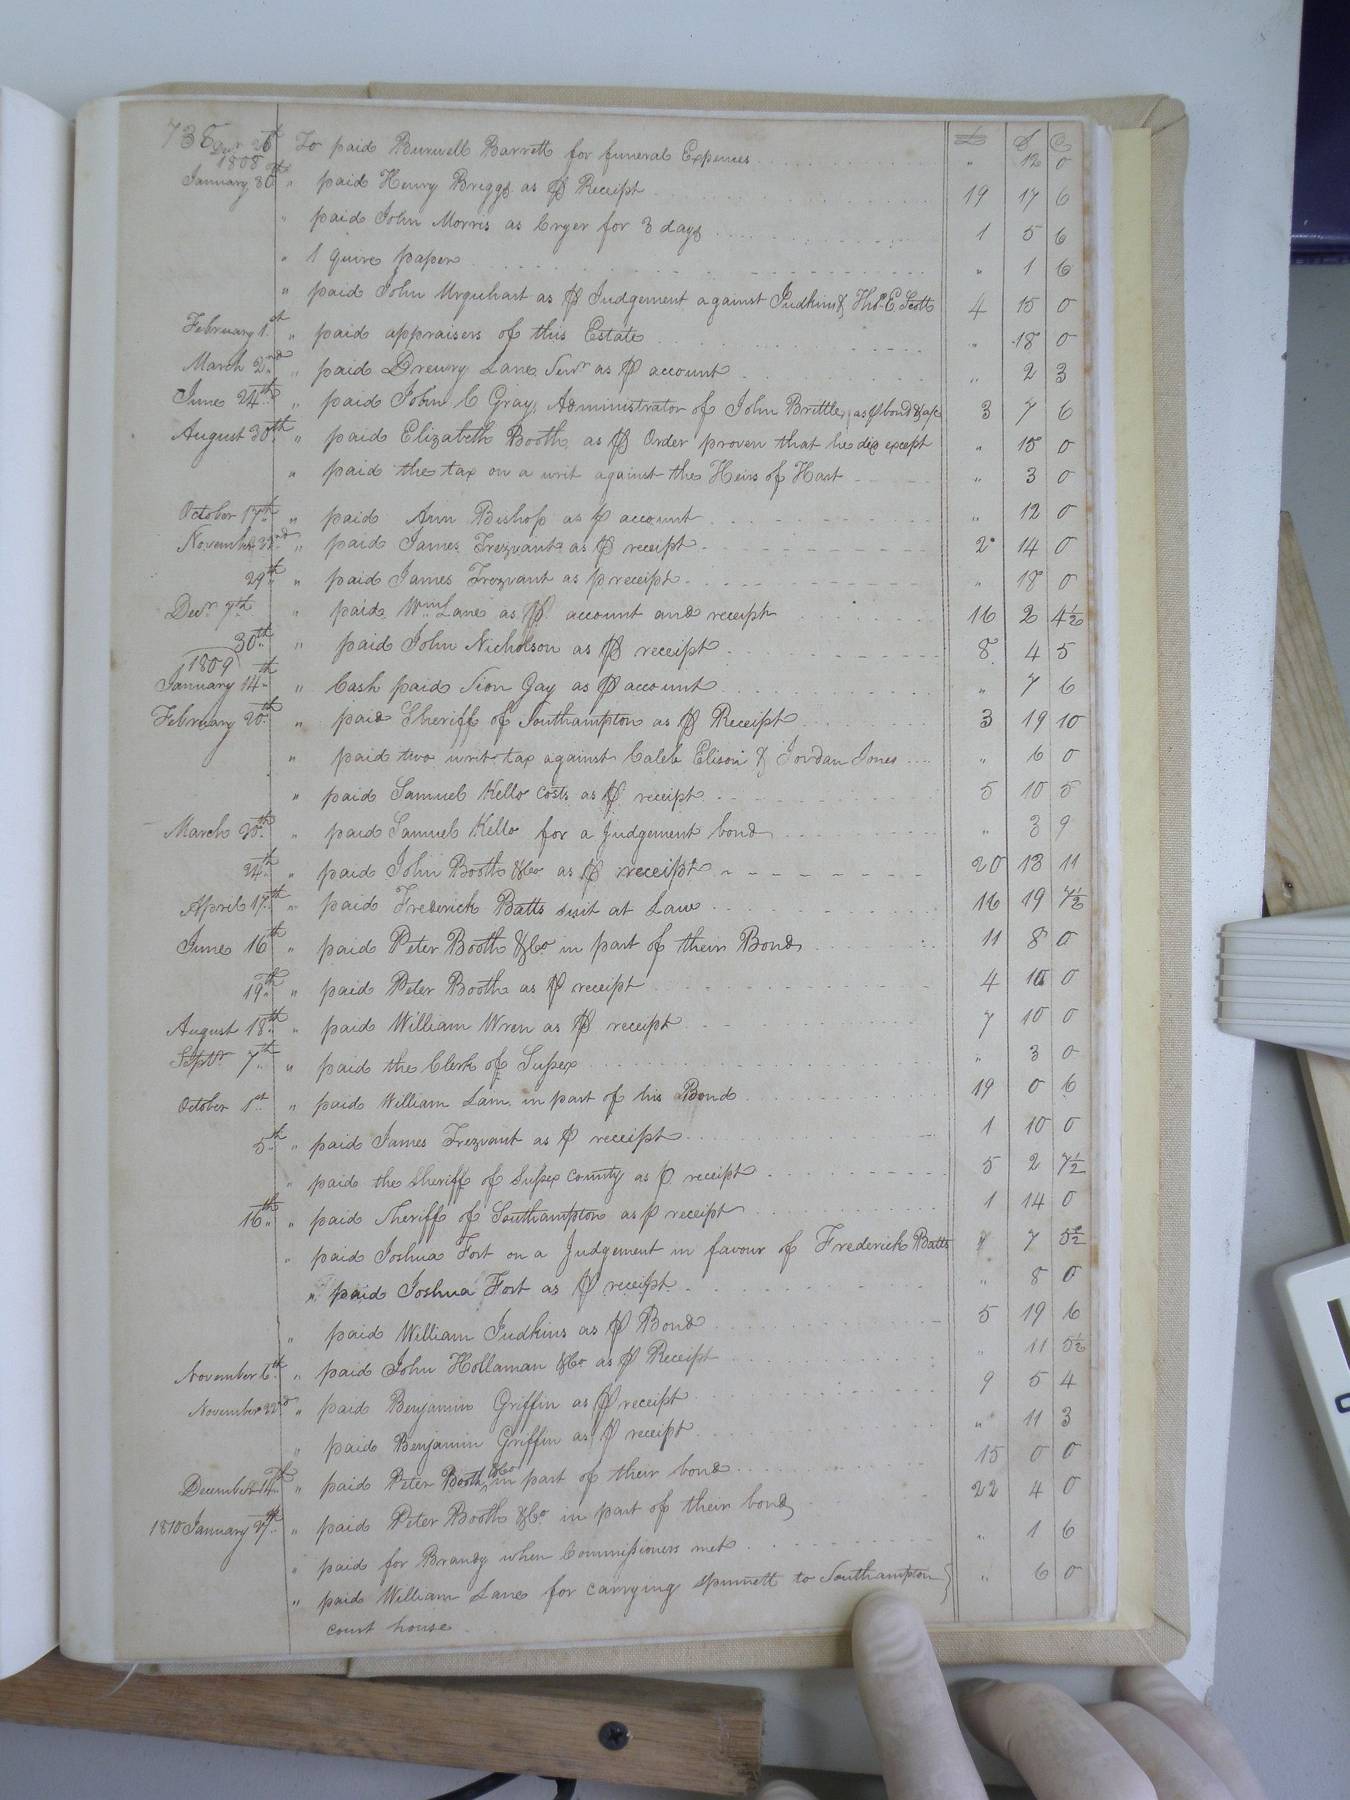 738 Decr 26th To paid Burwell Barrett for funeral Expences " 12 0
1808
January 30th " paid Henry Briggs as ⅌ Receipt 19 17 6
" paid John Morris as Cryer for 3 days 1 5 6
" 1 Quire paper " 1 6
" paid John Urquhart as ⅌ Judgement against Judkins & Thos E Scott 4 15 0
February 1st " paid appraisers of this Estate " 18 0
March 2nd " paid Drewry Lane Senr as ⅌ account " 2 3
June 24th " paid John C Gray Administrator of John Brittle as ⅌ bond & a/c 3 7 6
August 30th " paid Elizabeth Booth as ⅌ Order proven that he did except " 15 0
" paid the tax on a writ against the Heirs of Hart " 3 0
October 17th " paid Ann Bishop as ⅌ account " 12 0
November 22nd " paid James Trezvant as ⅌ receipt 2 14 0
29th " paid James Trezvant as ⅌ receipt " 18 0
Decr 7th " paid Wm Lane as ⅌ account and receipt 16 2 4½
30th " paid John Nicholson as ⅌ receipt 8 4 5
1809
January 14th " Cash paid Sion Gay as ⅌ account " 7 6
February 20th " paid Sheriff of Southampton as ⅌ Receipt 3 19 10
" paid two writ tax against Caleb Elison & Jordan Jones " 6 0
" paid Samuel Kello costs as ⅌ receipt 5 10 5
March 20th " paid Samuel Kello for a Judgement bond " 3 9
24th " paid John Booth &Co as ⅌ receipt 20 13 11
April 17th " paid Frederick Batts suit at Law 16 19 7½
June 16th " paid Peter Booth &Co in part of their Bond 11 8 0
19th " paid Peter Booth as ⅌ receipt 4 0
August 18th " paid William Wren as ⅌ receipt 7 10 0
Septr 7th " paid the Clerk of Sussex " 3 0
October 1st " paid William Lain in part of his Bond 19 0 6
5th " paid James Trezvant as ⅌ receipt 1 10 0
" paid the Sheriff of Sussex County as ⅌ receipt 5 2 7½
16th " paid Sheriff of Southampton as ⅌ receipt 1 14 0
" paid Joshua Fort on a Judgement in favour of Frederick Batts 7 5½
" paid Joshua Fort as ⅌ receipt " 8 0
" paid William Judkins as ⅌ Bond 5 19 6
November 6th " paid John Hollaman &Co as ⅌ Receipt " 11 5½
November 22nd " paid Benjamin Griffin as ⅌ receipt 9 5 4
" paid Benjamin Griffin as ⅌ receipt " 11 3
December 14th " paid Peter Booth &Co in part of their bond 15 0 0
1810 January 27th " paid Peter Booth &Co in part of their bond 22 4 0
" paid for Brandy when Commissioners met " 1 6
" paid William Lane for carrying spinnett to Southampton } " 6 0
court house